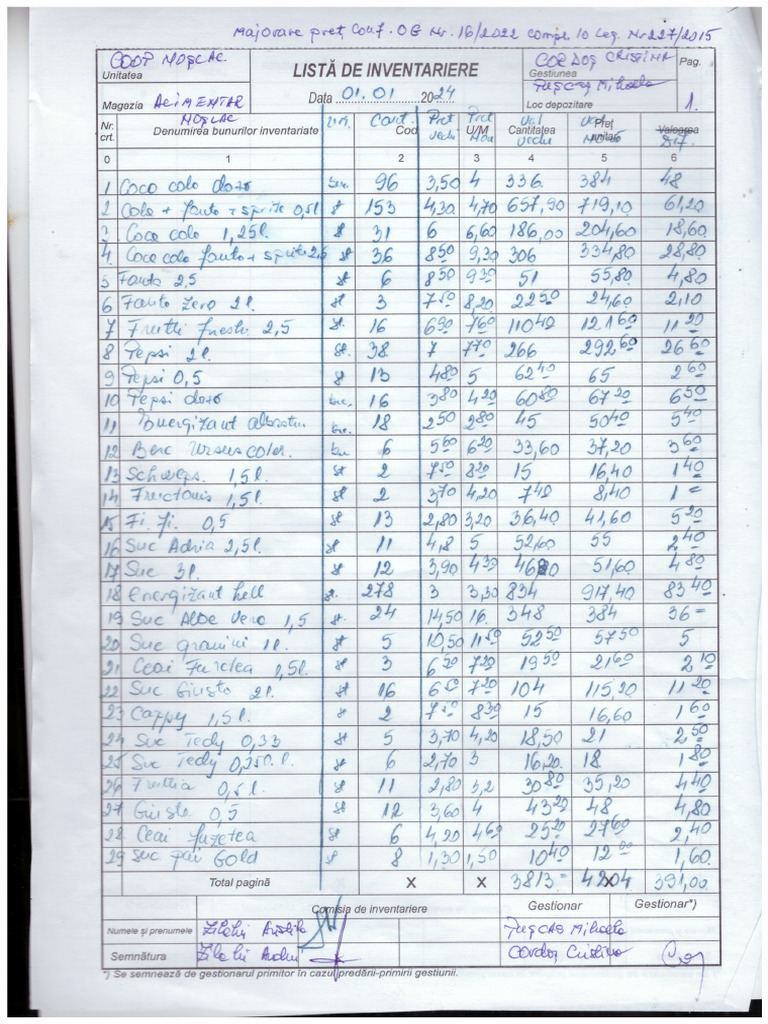 Majorare preț conf. OG Nr. 16/2022 comp. 10 Leg. Nr 227/2015
COOP NOȘLAC
Unitatea
LISTĂ DE INVENTARIERE
CORDOȘ CRISTINA
Gestiunea
Pușcaș Mihaela
Pag.
1.
Magazia ALIMENTAR
NOȘLAC
Data 01.01 2024
Loc depozitare
Nr. crt. Denumirea bunurilor inventariate U.M. Cant. Cod Preț vechi Preț U/M Nou Val Cantitatea veche Val Preț unitar Nouă Valoarea Dif.
0 1 2 3 4 5 6
1 Coca cola doză buc. 96 3,50 4 336 384 48
2 Cola + fanta + sprite 0,5l st 153 4,30 4,70 657,90 719,10 61,20
3 Coca cola 1,25l st 31 6 6,60 186,00 204,60 18,60
4 Coca cola fanta + sprite 2,5 st 36 8,50 9,30 306 334,80 28,80
5 Fanta 2,5 st 6 8,50 9,30 51 55,80 4,80
6 Fanta Zero 2l. st 3 7,50 8,20 22,50 24,60 2,10
7 Frutti fresh 2,5 st. 16 6,90 7,60 110,40 121,60 11,20
8 Pepsi 2l. st. 38 7 7,70 266 292,60 26,60
9 Pepsi 0,5 st 13 4,80 5 62,40 65 2,60
10 Pepsi doză buc. 16 3,80 4,20 60,80 67,20 6,50
11 Energizant albastru buc. 18 2,50 2,80 45 50,40 5,40
12 Bere Ursus color. bu 6 5,60 6,20 33,60 37,20 3,60
13 Schweps. 1,5l. st 2 7,50 8,20 15 16,40 1,40
14 Fructonis 1,5l. st 2 3,70 4,20 7,40 8,40 1 =
15 Fi. fi. 0,5 st 13 2,80 3,20 36,40 41,60 5,20
16 Suc Adria 2,5l. st 11 4,8 5 52,60 55 2,40
17 Suc 3l. st 12 3,90 4,30 46,80 51,60 4,80
18 Energizant hell st. 278 3 3,30 834 917,40 83,40
19 Suc Aloe Vera 1,5 st. 24 14,50 16. 348 384 36 =
20 Suc granini 1l. st 5 10,50 11,50 52,50 57,50 5
21 Ceai Fuzetea 1,5l. st 3 6,50 7,20 19,50 21,60 2,10
22 Suc Giusto 2l. st 16 6,50 7,20 104 115,20 11,20
23 Cappy 1,5l. st 2 7,50 8,30 15 16,60 1,60
24 Suc Tedy 0,33 st 5 3,70 4,20 18,50 21 2,50
25 Suc Tedy 0,250.l. st 6 2,70 3 16,20. 18 1,80
26 Fruttia 0,5l. st 11 2,80 3,2 30,80 35,20 4,40
27 Giusto 0,5 st 12 3,60 4 43,20 48 4,80
28 Ceai fuzetea st 6 4,20 4,60 25,20 27,60 2,40
29 Suc pai Gold st 8 1,30 1,50 10,40 12,00 1,60.
Total pagină X X 3813= 4204 X 391,00
Comisia de inventariere Gestionar Gestionar*)
Numele și prenumele Pușcaș Mihaela
Semnătura Cordoș Cristina
*) Se semnează de gestionarul primitor în cazul predării-primirii gestiunii.